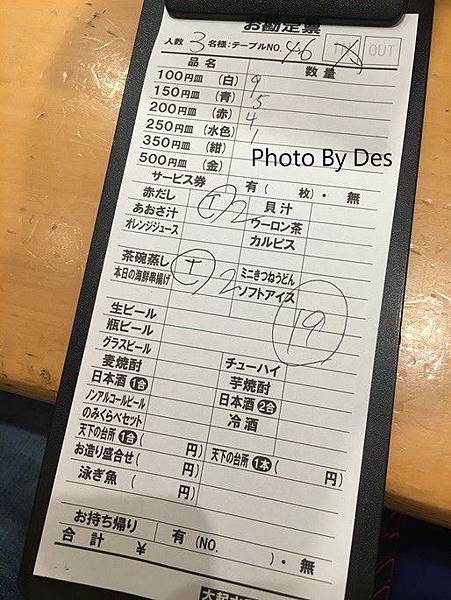 お勘定票
人数 3 名様:テーブルNO. 46 IN OUT
品名 数量
100円皿 (白) 9
150円皿 (青) 5
200円皿 (赤) 4
250円皿 (水色) 1
350円皿 (紺)
500円皿 (金)
Photo By Des
サービス券 有( 枚)・無
赤だし 貝汁
あおさ汁 ウーロン茶
オレンジジュース カルピス
茶碗蒸し ミニきつねうどん
本日の海鮮串揚げ ソフトアイス
19
生ビール
瓶ビール
グラスビール
麦焼酎 チューハイ
日本酒 1合 芋焼酎
ノンアルコールビール 日本酒 2合
のみくらべセット 冷酒
天下の台所 1合 ( 円) 天下の台所 1本 ( 円)
お造り盛合せ( 円)
泳ぎ魚 ( 円)
お持ち帰り 有 (NO. )・無
合計 ¥